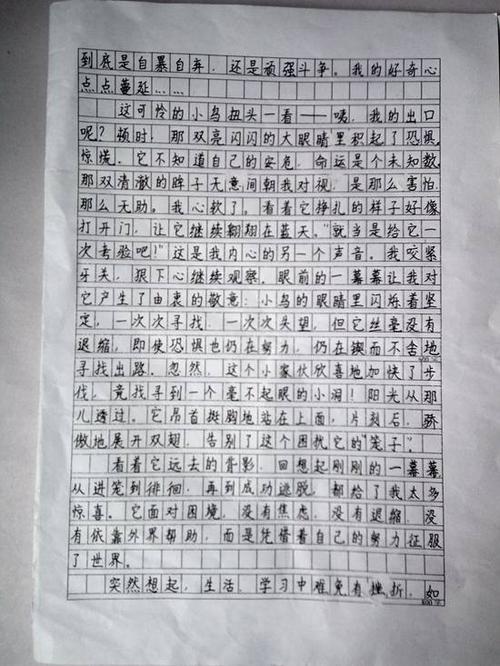 到底是自暴自弃，还是顽强斗争。我的好奇心
点点蔓延……
这可怜的小鸟扭头一看——咦，我的出口
呢？顿时，那双亮闪闪的大眼睛里积起了恐惧、
惊慌。它不知道自己的安危，命运是个未知数，
那双清澈的眸子无意间朝我对视，是那么害怕，
那么无助。我心软了。看着它挣扎的样子好像
打开门，让它继续翱翔在蓝天。“就当是给它一
次考验吧！”这是我内心的另一个声音。我咬紧
牙关，狠下心继续观察。眼前的一幕幕让我对
它产生了由衷的敬意：小鸟的眼睛里闪烁着坚
定，一次次寻找，一次次失望，但它丝毫没有
退缩，即使恐惧也仍在努力，仍在锲而不舍地
600字
寻找出路。忽然，这个小家伙欣喜地加快了步
伐，竟找寻到一个毫不起眼的小洞！阳光从那
儿透过。它昂首挺胸地站在上面，片刻后，骄
傲地展开双翅，告别了这个困扰它的“笼子”。
看着它远去的背影，回想起刚刚的一幕幕，
从进笼到徘徊，再到成功逃脱，都给了我太多
惊喜。它面对困境，没有焦虑，没有退缩，没
有依靠外界帮助，而是凭借着自己的努力征服
了世界。
突然想起，生活、学习中难免有挫折，如
800字